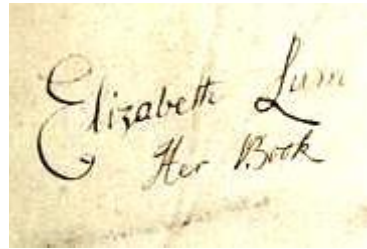 Elizabeth Lum
Her Book